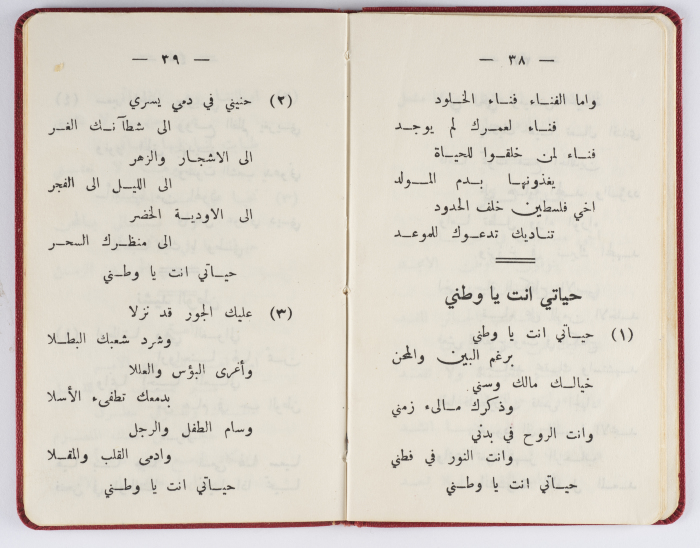 — ٣٨ —
واما الفناء فناء الخلود
فناء لعمرك لم يوجد
فناء لمن خلقوا للحياة
يغذونها بدم المولد
اخي فلسطين خلف الحدود
تناديك تدعوك للموعد
حياتي انت يا وطني
(١) حياتي انت يا وطني
برغم البين والمحن
خيالك مالك وسني
وذكرك مالىء زمني
وانت الروح في بدني
وانت النور في فطني
حياتي انت يا وطني
— ٣٩ —
(٢) حنيني في دمي يسري
الى شطآنك الغر
الى الاشجار والزهر
الى الليل الى الفجر
الى الاودية الخضر
الى منظرك السحر
حياتي انت يا وطني
(٣) عليك الجور قد نزلا
وشرد شعبك البطلا
وأغرى البؤس والعللا
بدمعك تطفىء الأسلا
وسام الطفل والرجل
وادمى القلب والمقلا
حياتي انت يا وطني